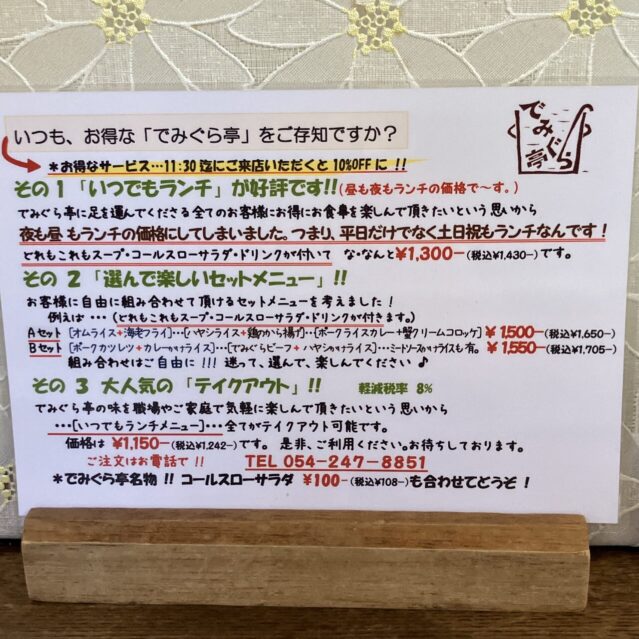 いつも、お得な「でみぐら亭」をご存知ですか？
でみぐら亭
＊お得なサービス…11:30 迄にご来店いただくと 10%OFF に !!
その 1 「いつでもランチ」が好評です!!(昼も夜もランチの価格で～す。)
でみぐら亭に足を運んでくださる全てのお客様にお得にお食事を楽しんで頂きたいという思いから
夜も昼もランチの価格にしてしまいました。つまり、平日だけでなく土日祝もランチなんです！
どれもこれもスープ・コールスローサラダ・ドリンクが付いて な・なんと¥1,300-(税込¥1,430-)です。
その 2 「選んで楽しいセットメニュー」!!
お客様に自由に組み合わせて頂けるセットメニューを考えました！
例えは … (どれもこれもスープ・コールスローサラダ・ドリンクが付きます。)
Aセット [オムライス+海老フライ]…[ハヤシライス+鶏のから揚げ]…[ポークライスカレー+蟹クリームコロッケ] ¥1,500-(税込¥1,650-)
Bセット [ポークカツレツ+カレーorライス]…[でみぐらビーフ+ハヤシorライス]…ミートソースorライスも有。 ¥1,550-(税込¥1,705-)
組み合わせはご自由に !!! 迷って、選んで、楽しんでください ♪
その 3 大人気の「テイクアウト」!! 軽減税率 8%
でみぐら亭の味を職場やご家庭で気軽に楽しんで頂きたいという思いから
…[いつでもランチメニュー]…全てがテイクアウト可能です。
価格は ¥1,150-(税込¥1,242-)です。 是非、ご利用ください。お待ちしております。
ご注文はお電話で !! TEL 054-247-8851
＊でみぐら亭名物 !! コールスローサラダ ¥100-(税込¥108-)も合わせてどうぞ！